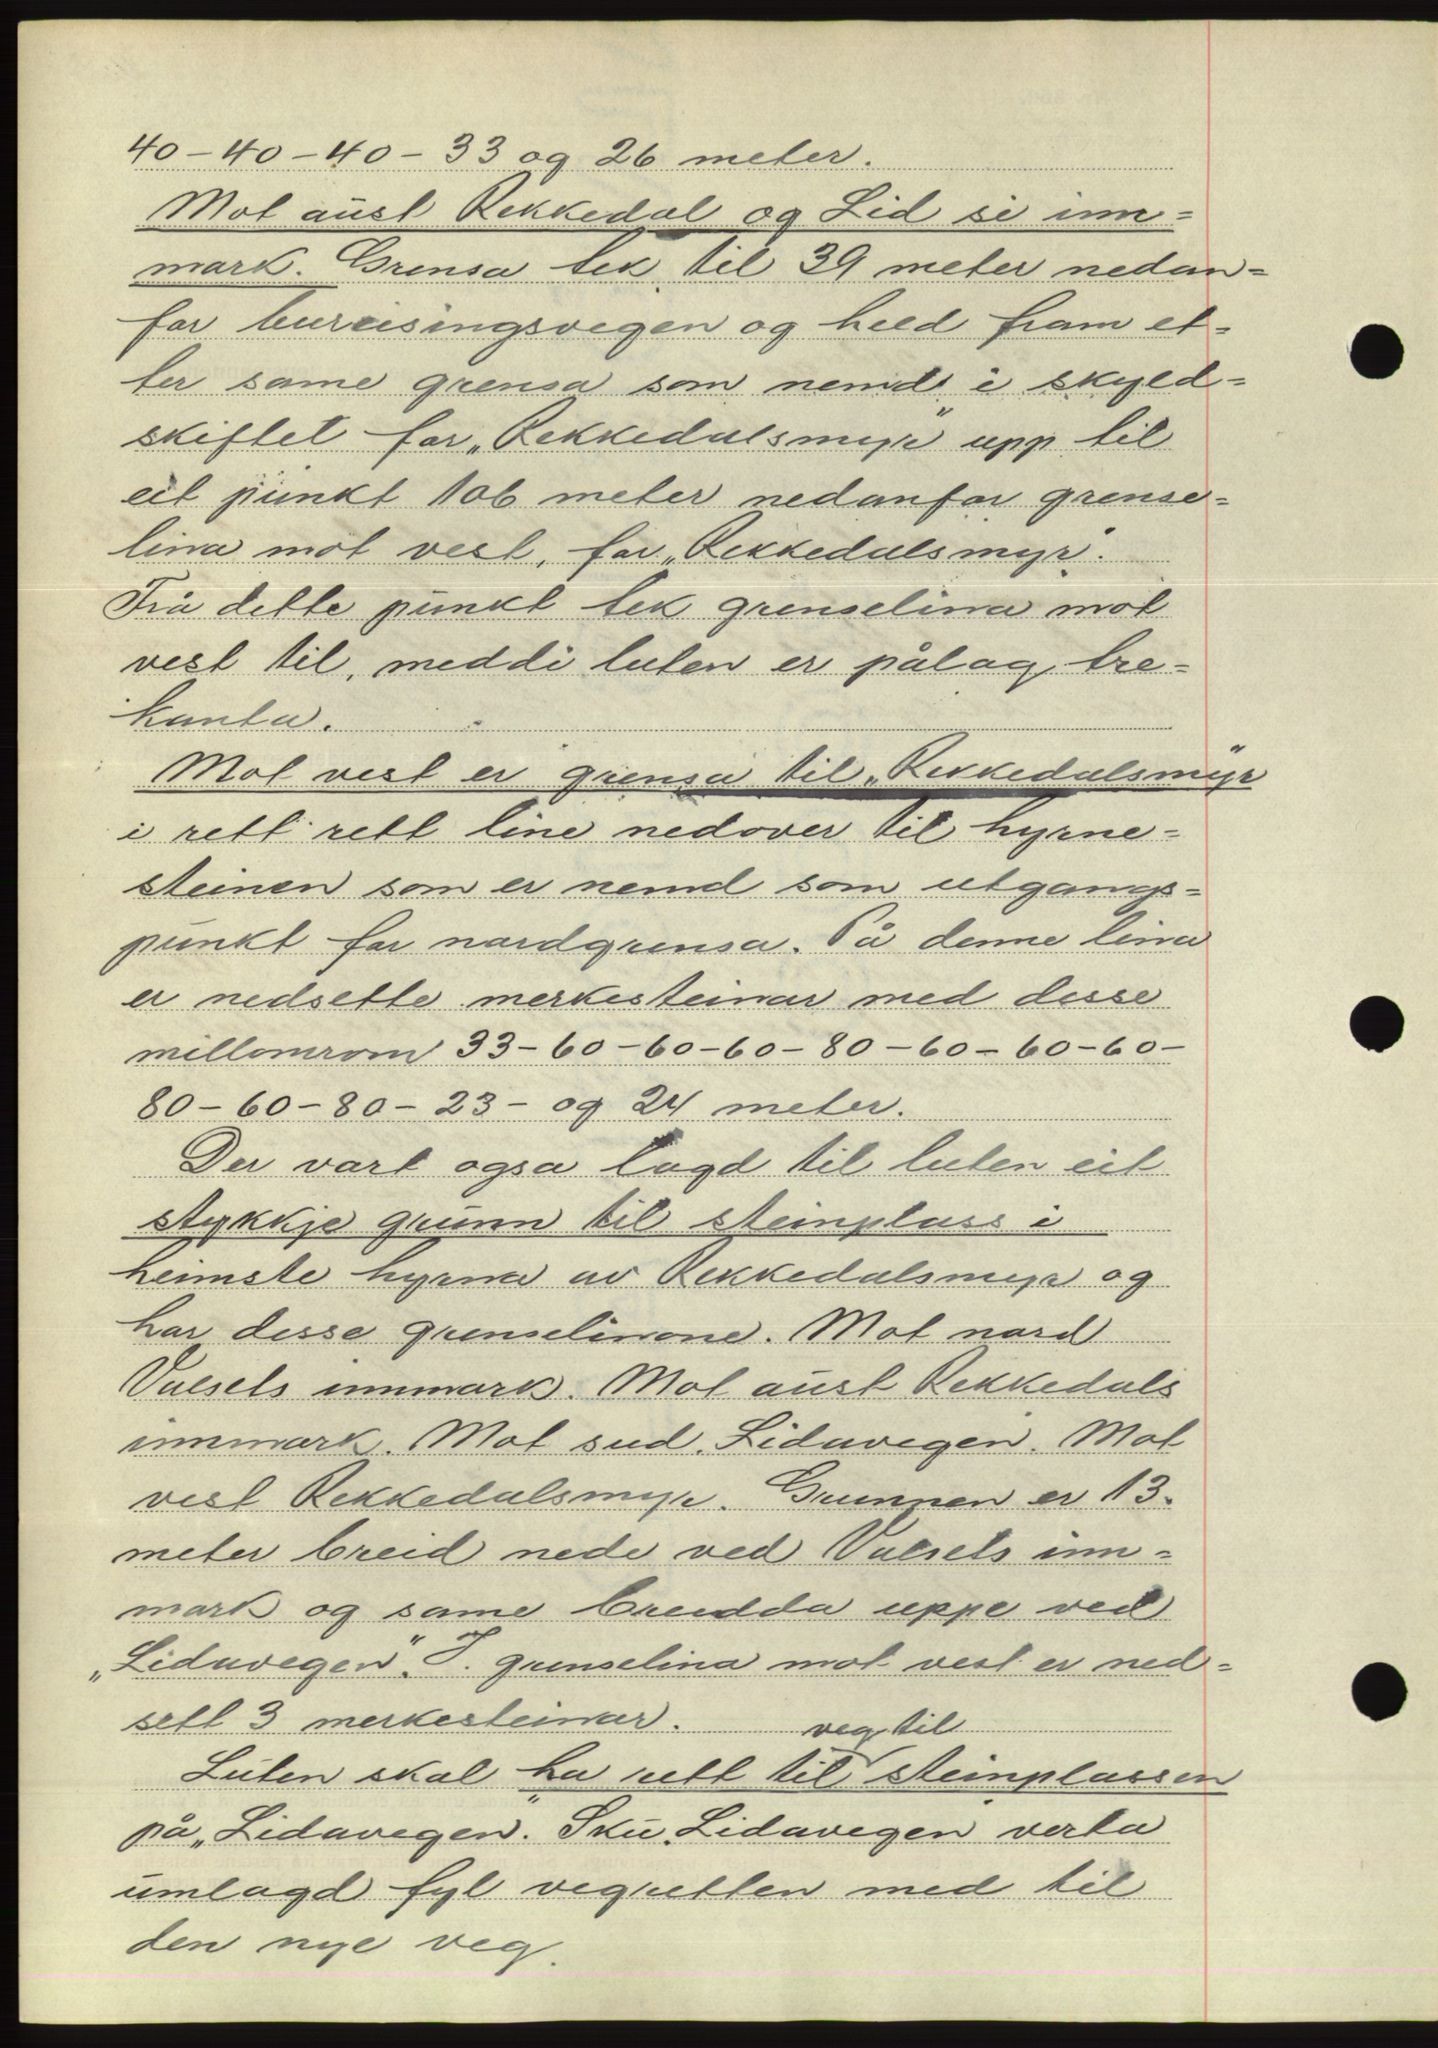 40-40-40-33 og 26 meter.
Mot aust Rekkedal og Lid si inn=
mark. Grensa tek til 39 meter nedan=
for bureisingsvegen og held fram et=
ter same grensa som nemd i skyld=
skiftet for „Rekkedalsmyr" upp til
eit punkt 106 meter nedanfor grense=
lina mot vest, for „Rekkedalsmyr".
Frå dette punkt tek grenselina mot
vest til, meddi luten er pålag tre=
kanta.
Mot vest er grensa til „Rekkedalsmyr"
i rett rett line nedover til hyrne=
steinen som er nemd som utgangs=
punkt for nordgrensa. På denne lina
er nedsette merkesteinar med desse
millomrom 33-60-60-60-80-60-60-60-
80-60-80-23- og 24 meter.
Der vart ogsa lagd til luten eit
stykkje grunn til steinplass i
heimste hyrna av Rekkedalsmyr og
har desse grenselinone. Mot nord
Valsets innmark. Mot aust Rekkedals
innmark. Mot sud. Lidavegen. Mot
vest Rekkedalsmyr. Grunnen er 13.
meter breid nede ved Valsets inn=
mark og same breidda uppe ved
„Lidavegen". I. grenselina mot vest er ned=
sett 3 merkesteinar.
veg til
Luten skal ha rett til steinplassen
på „Lidavegen". Sku „Lidavegen verta
umlagd fyl vegretten med til
den nye veg.